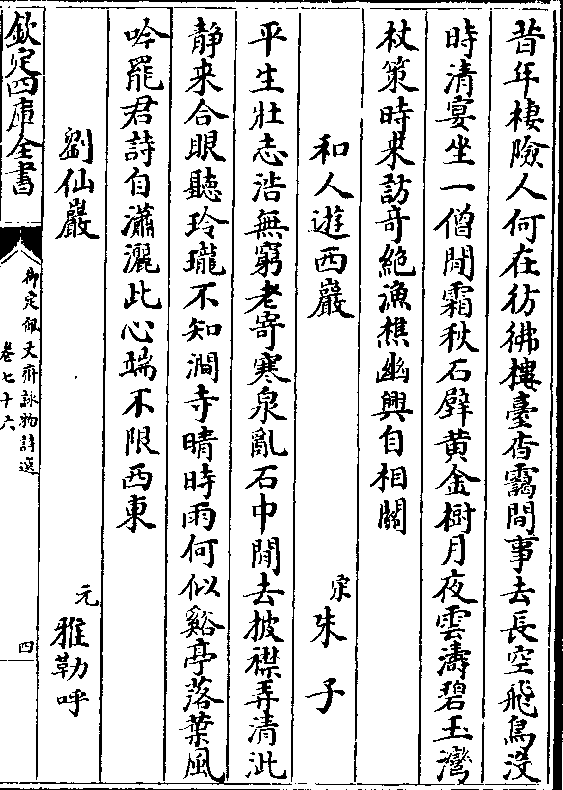 昔年棲險人何在彷彿樓臺杳靄間事去長空飛鳥没
時清宴坐一僧閒霜秋石壁黄金樹月夜雲濤碧玉灣
杖策時来訪奇絶漁樵幽興自相關
和人遊西巖
宋朱子
平生壯志浩無窮老寄寒泉亂石中閒去披襟弄清泚
静来合眼聽玲瓏不知澗寺晴時雨何似谿亭落葉風
吟罷君詩自瀟灑此心端不限西東
劉仙巖
元雅勒呼
欽定四庫全書
御定佩文齋詠物詩選
卷七十六
四